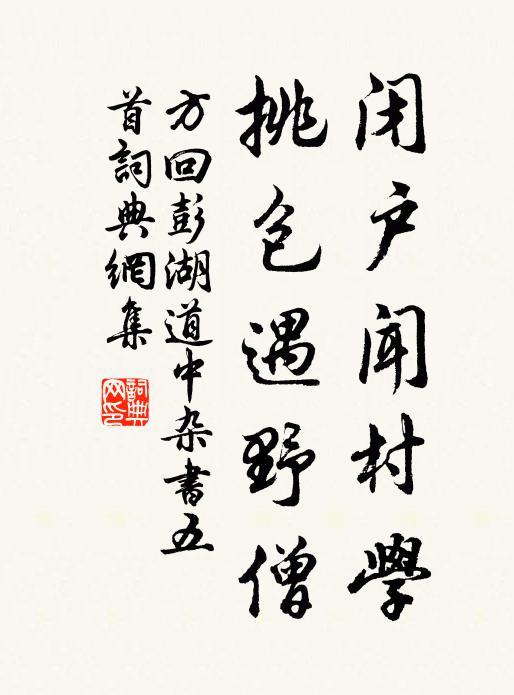 闭户闻村學
挑包遇野僧
方回彭湖道中杂書五
首詞典網集
詞典
网印